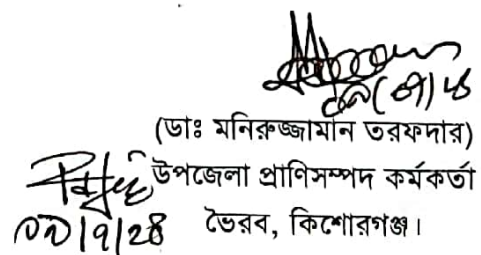 (ডাঃ মনিরুজ্জামান তরফদার)
উপজেলা প্রাণিসম্পদ কর্মকর্তা
ভৈরব, কিশোরগঞ্জ।